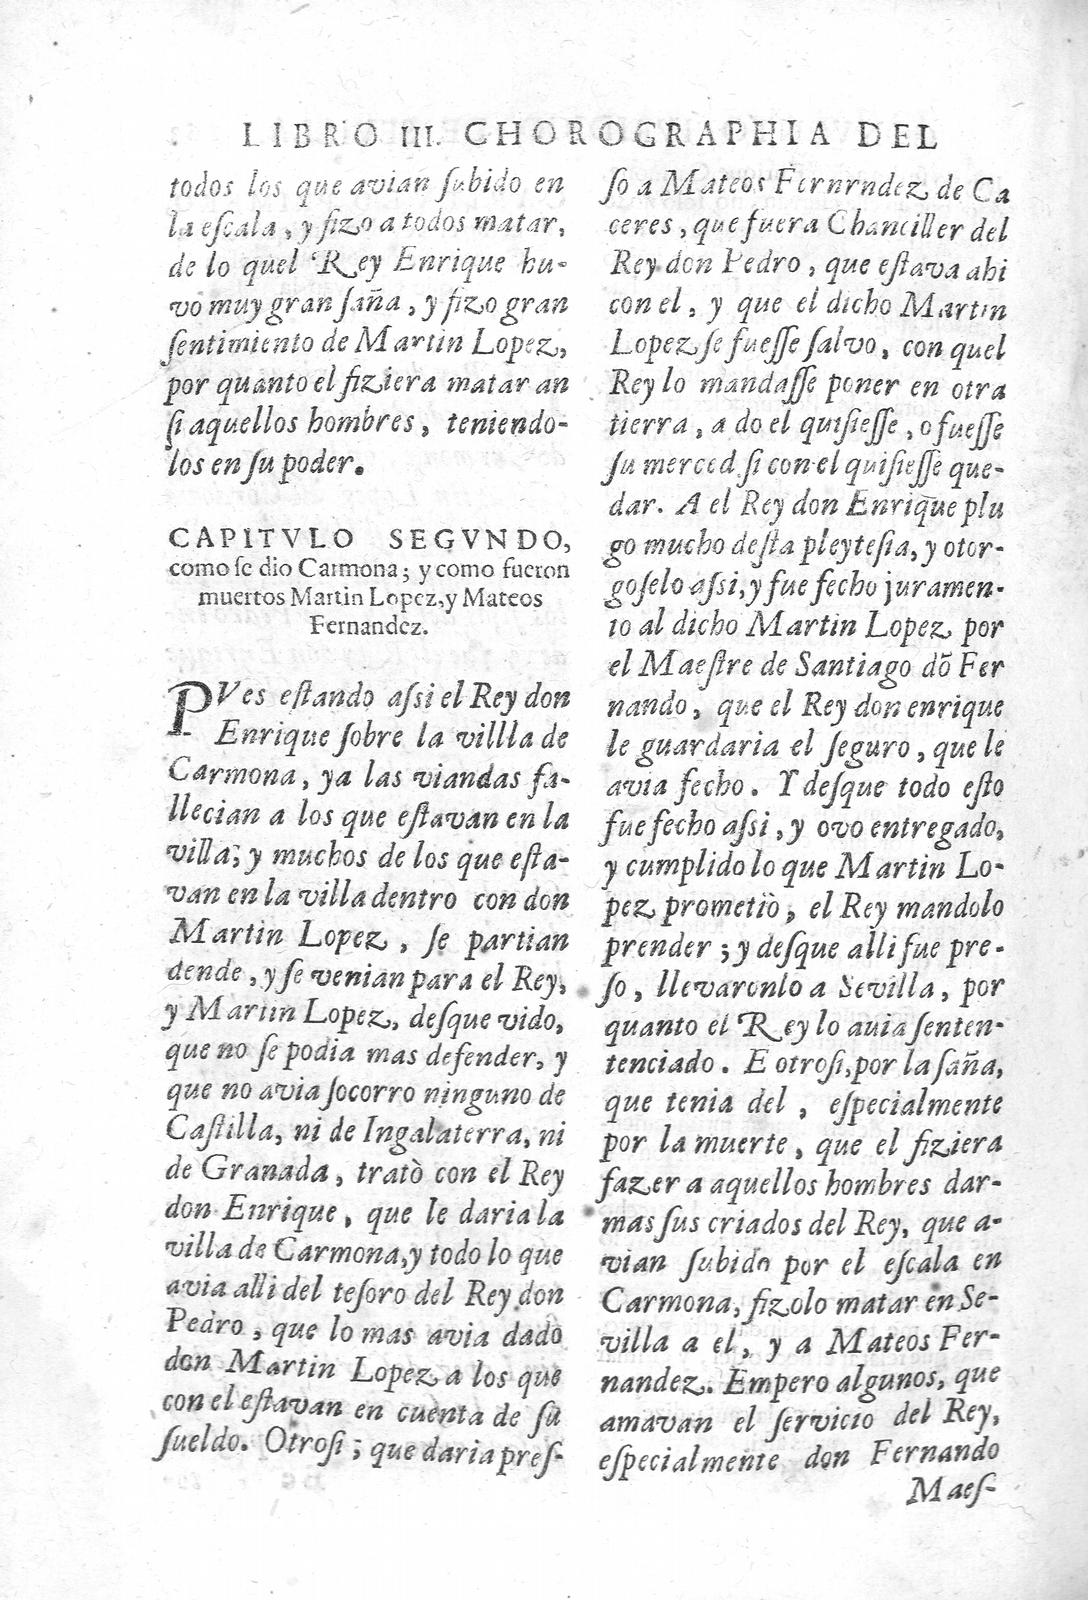 LIBRO III. CHOROGRAPHIA DEL
todos los que avian ſubido en
la eſcala, y fizo a todos matar,
de lo quel Rey Enrique hu-
vo muy gran ſaña, y fizo gran
ſentimiento de Martin Lopez,
por quanto el fiziera matar an
ſi aquellos hombres, teniendo-
los en ſu poder.
CAPITVLO SEGVNDO,
como ſe dio Carmona; y como fueron
muertos Martin Lopez, y Mateos
Fernandez.
PVes eſtando aſsi el Rey don
Enrique ſobre la villla de
Carmona, ya las viandas fa-
llecian a los que eſtavan en la
villa; y muchos de los que eſta-
van en la villa dentro con don
Martin Lopez, ſe partian
dende, y ſe venian para el Rey,
y Martin Lopez, deſque vido,
que no ſe podia mas defender, y
que no avia ſocorro ninguno de
Caſtilla, ni de Ingalaterra, ni
de Granada, tratò con el Rey
don Enrique, que le daria la
villa de Carmona, y todo lo que
avia alli del teſoro del Rey don
Pedro, que lo mas avia dado
don Martin Lopez a los que
con el eſtavan en cuenta de ſu
ſueldo. Otroſi; que daria preſ-
ſo a Mateos Fernrndez de Ca
ceres, que fuera Chanciller del
Rey don Pedro, que eſtava ahi
con el, y que el dicho Martin
Lopez ſe fueſſe ſalvo, con quel
Rey lo mandaſſe poner en otra
tierra, a do el quiſieſſe, o fueſſe
ſu merced ſi con el quiſieſſe que-
dar. A el Rey don Enrique plu
go mucho deſta pleyteſia, y otor-
goſelo aſsi, y fue fecho juramen-
to al dicho Martin Lopez por
el Maeſtre de Santiago dõ Fer
nando, que el Rey don enrique
le guardaria el ſeguro, que le
avia fecho. Y deſque todo eſto
fue fecho aſsi, y ovo entregado,
y cumplido lo que Martin Lo-
pez prometiò, el Rey mandolo
prender; y deſque alli fue pre-
ſo, llevaronlo a Sevilla, por
quanto el Rey lo auia ſenten-
tenciado. E otroſi, por la ſaña,
que tenia del, eſpecialmente
por la muerte, que el fiziera
fazer a aquellos hombres dar-
mas ſus criados del Rey, que a-
vian ſubido por el eſcala en
Carmona, fizolo matar en Se-
villa a el, y a Mateos Fer-
nandez. Empero algunos, que
amavan el ſervicio del Rey,
eſpecialmente don Fernando
Maeſ-